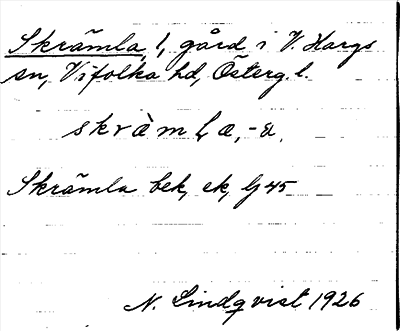 Skrämla, 1, gård i V. Hargs
sn, Vifolka hd, Österg. l.
skràm l, a, -a,
Skrämla bek, ek, Gj 45
N. Lindqvist 1926